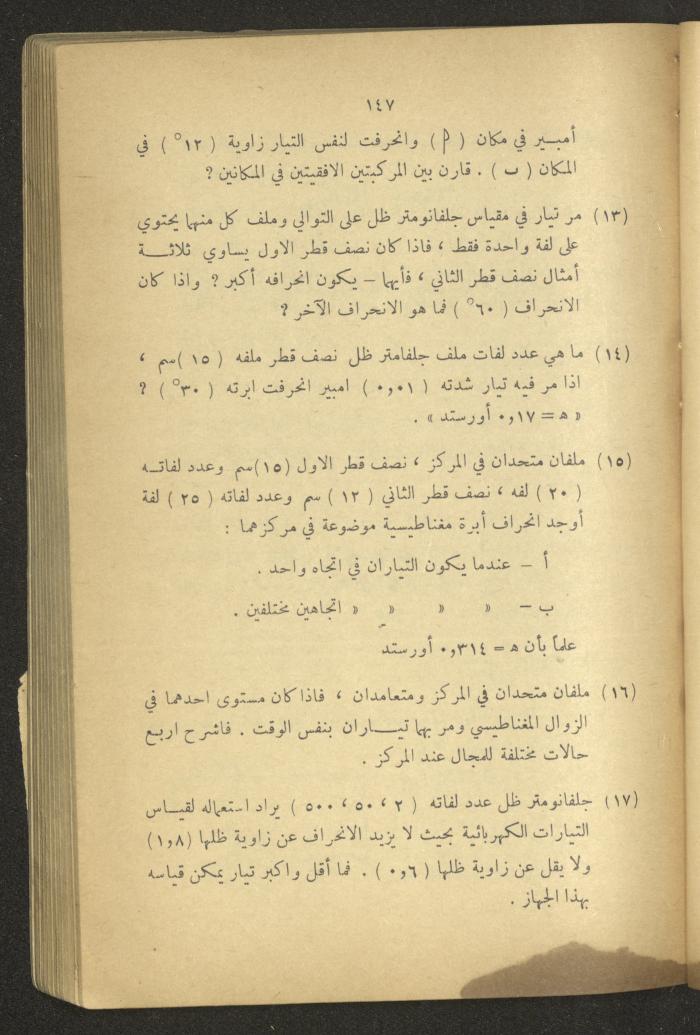 ١٤٧
أمبير في مكان ( أ ) وانحرفت لنفس التيار زاوية ( ١٢° ) في
المكان ( ب ) . قارن بين المركبتين الافقيتين في المكانين ؟
(١٣) مر تيار في مقياس جلفانومتر ظل على التوالي وملف كل منهما يحتوي
على لفة واحدة فقط ، فاذا كان نصف قطر الاول يساوي ثلاثة
أمثال نصف قطر الثاني ، فأيهما – يكون انحرافه أكبر ؟ واذا كان
الانحراف ( ٦٠° ) فما هو الانحراف الآخر ؟
(١٤) ما هي عدد لفات ملف جلفامتر ظل نصف قطر ملفه ( ١٥ )سم ،
اذا مر فيه تيار شدته ( ٠,٠١ ) امبير انحرفت ابرته ( ٣٠° ) ؟
« ه = ٠,١٧ أورستد » .
(١٥) ملفان متحدان في المركز ، نصف قطر الاول (١٥)سم وعدد لفاته
( ٢٠ ) لفه ، نصف قطر الثاني ( ١٢ ) سم وعدد لفاته ( ٢٥ ) لفة
أوجد انحراف أبرة مغناطيسية موضوعة في مركزهما :
أ – عندما يكون التياران في اتجاه واحد .
ب – » » » » اتجاهين مختلفين .
علماً بأن ه = ٠,٣١٤ أورستد
(١٦) ملفان متحدان في المركز ومتعامدان ، فاذا كان مستوى احدهما في
الزوال المغناطيسي ومر بهما تيـاران بنفس الوقت . فاشرح اربع
حالات مختلفة للمجال عند المركز .
(١٧) جلفانومتر ظل عدد لفاته ( ٢ ، ٥٠ ، ٥٠٠ ) يراد استعماله لقياس
التيارات الكهربائية بحيث لا يزيد الانحراف عن زاوية ظلها (١,٨)
ولا يقل عن زاوية ظلها ( ٠,٦ ) . فما أقل واكبر تيار يمكن قياسه
بهذا الجهاز .